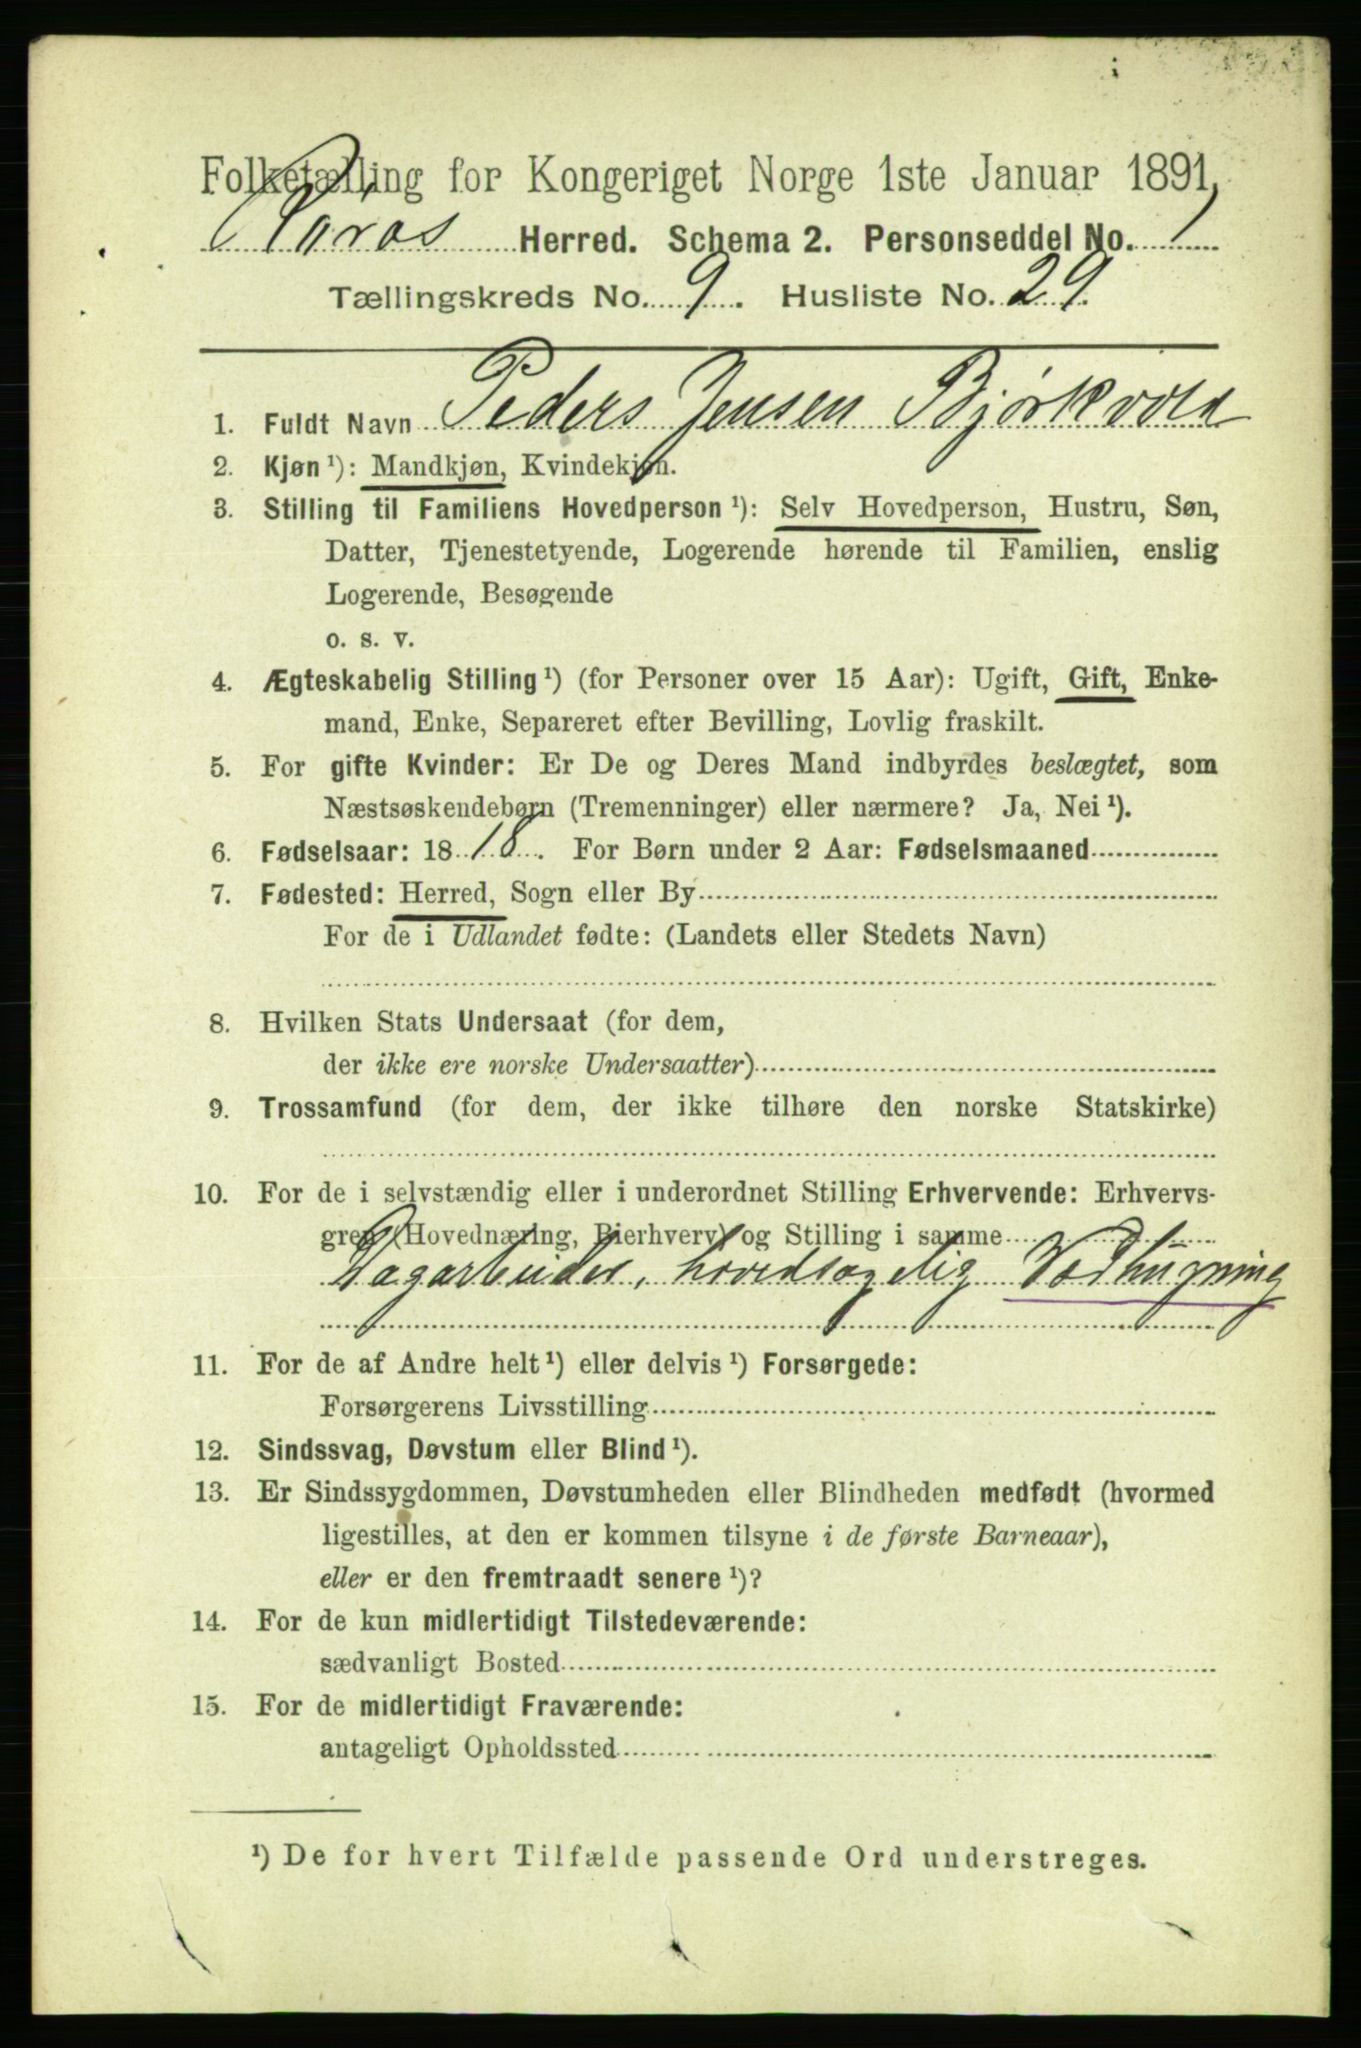 Folketælling for Kongeriget Norge 1ste Januar 1891.
Røros Herred. Schema 2. Personseddel No. 1
Tællingskreds No. 9. Husliste No. 29.
1. Fuldt Navn Peders Jensen Bjørkvold
2. Kjøn ¹): Mandkjøn, Kvindekjøn.
3. Stilling til Familiens Hovedperson ¹): Selv Hovedperson, Hustru, Søn,
Datter, Tjenestetyende, Logerende hørende til Familien, enslig
Logerende, Besøgende
o. s. v.
4. Ægteskabelig Stilling ¹) (for Personer over 15 Aar): Ugift, Gift, Enke-
mand, Enke, Separeret efter Bevilling, Lovlig fraskilt.
5. For gifte Kvinder: Er De og Deres Mand indbyrdes beslægtet, som
Næstsøskendebørn (Tremenninger) eller nærmere? Ja, Nei ¹).
6. Fødselsaar: 1818. For Børn under 2 Aar: Fødselsmaaned
7. Fødested: Herred, Sogn eller By
For de i Udlandet fødte: (Landets eller Stedets Navn)
8. Hvilken Stats Undersaat (for dem,
der ikke ere norske Undersaatter)
9. Trossamfund (for dem, der ikke tilhøre den norske Statskirke)
10. For de i selvstændig eller i underordnet Stilling Erhvervende: Erhvervs-
gren (Hovednæring, Bierhverv) og Stilling i samme
Dagarbeider, hovedsagelig Vedhugning
11. For de af Andre helt ¹) eller delvis ¹) Forsørgede:
Forsørgerens Livsstilling
12. Sindssvag, Døvstum eller Blind ¹).
13. Er Sindssygdommen, Døvstumheden eller Blindheden medfødt (hvormed
ligestilles, at den er kommen tilsyne i de første Barneaar),
eller er den fremtraadt senere ¹)?
14. For de kun midlertidigt Tilstedeværende:
sædvanligt Bosted
15. For de midlertidigt Fraværende:
antageligt Opholdssted
¹) De for hvert Tilfælde passende Ord understreges.